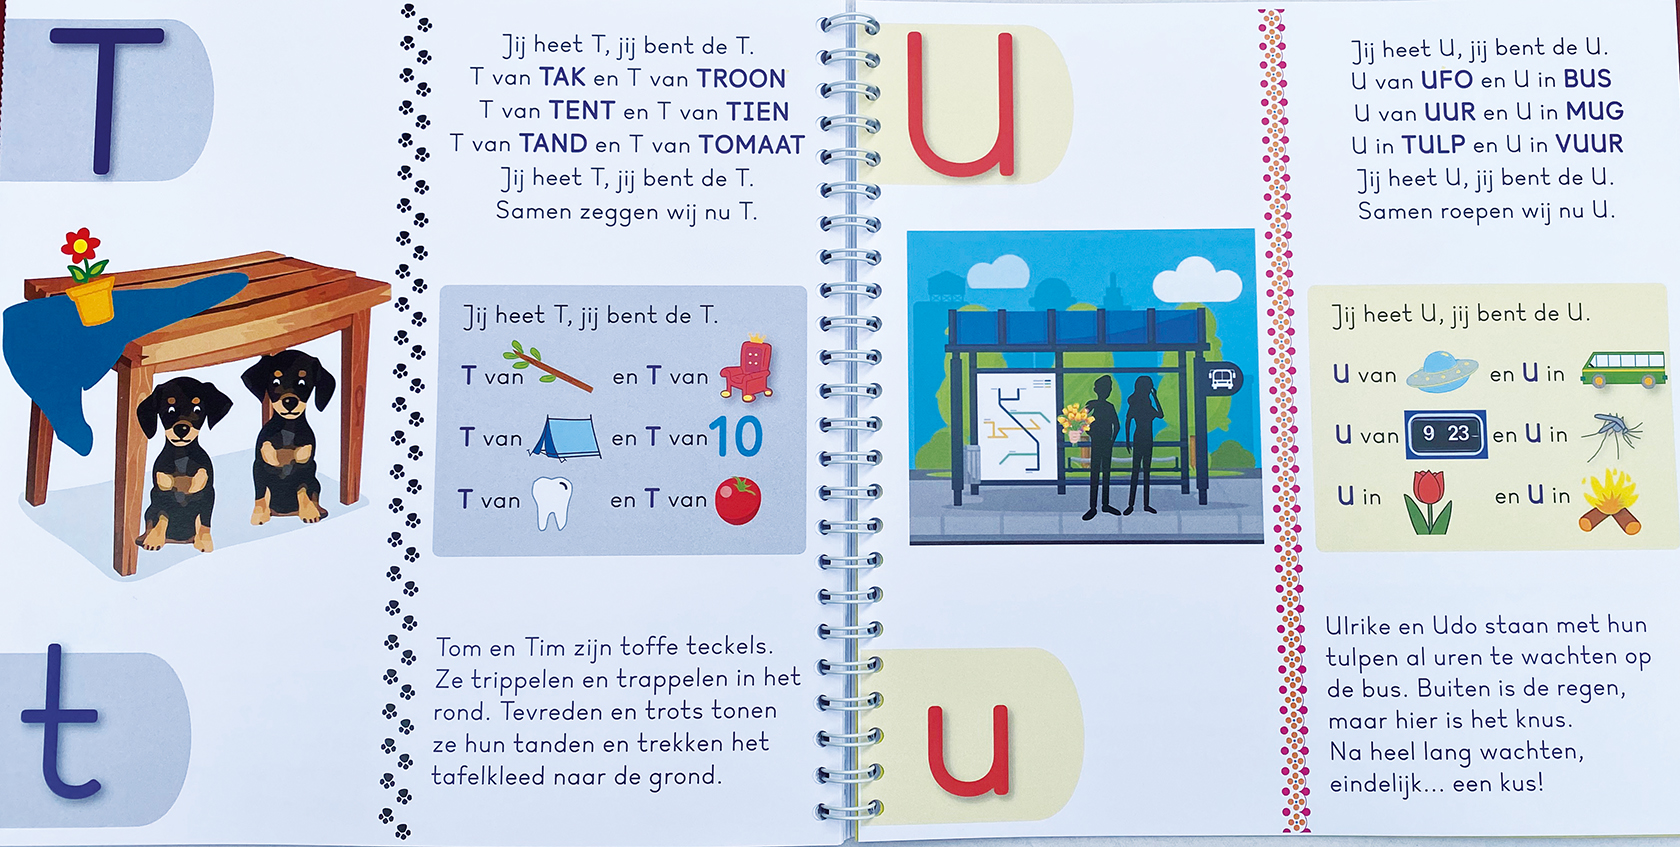 T
Jij heet T, jij bent de T.
T van TAK en T van TROON
T van TENT en T van TIEN
T van TAND en T van TOMAAT
Jij heet T, jij bent de T.
Samen zeggen wij nu T.
Jij heet T, jij bent de T.
T van en T van
T van en T van 10
T van en T van
t
Tom en Tim zijn toffe teckels.
Ze trippelen en trappelen in het
rond. Tevreden en trots tonen
ze hun tanden en trekken het
tafelkleed naar de grond.
U
Jij heet U, jij bent de U.
U van UFO en U in BUS
U van UUR en U in MUG
U in TULP en U in VUUR
Jij heet U, jij bent de U.
Samen roepen wij nu U.
Jij heet U, jij bent de U.
U van en U in
U van 9 23 en U in
U in en U in
u
Ulrike en Udo staan met hun
tulpen al uren te wachten op
de bus. Buiten is de regen,
maar hier is het knus.
Na heel lang wachten,
eindelijk... een kus!